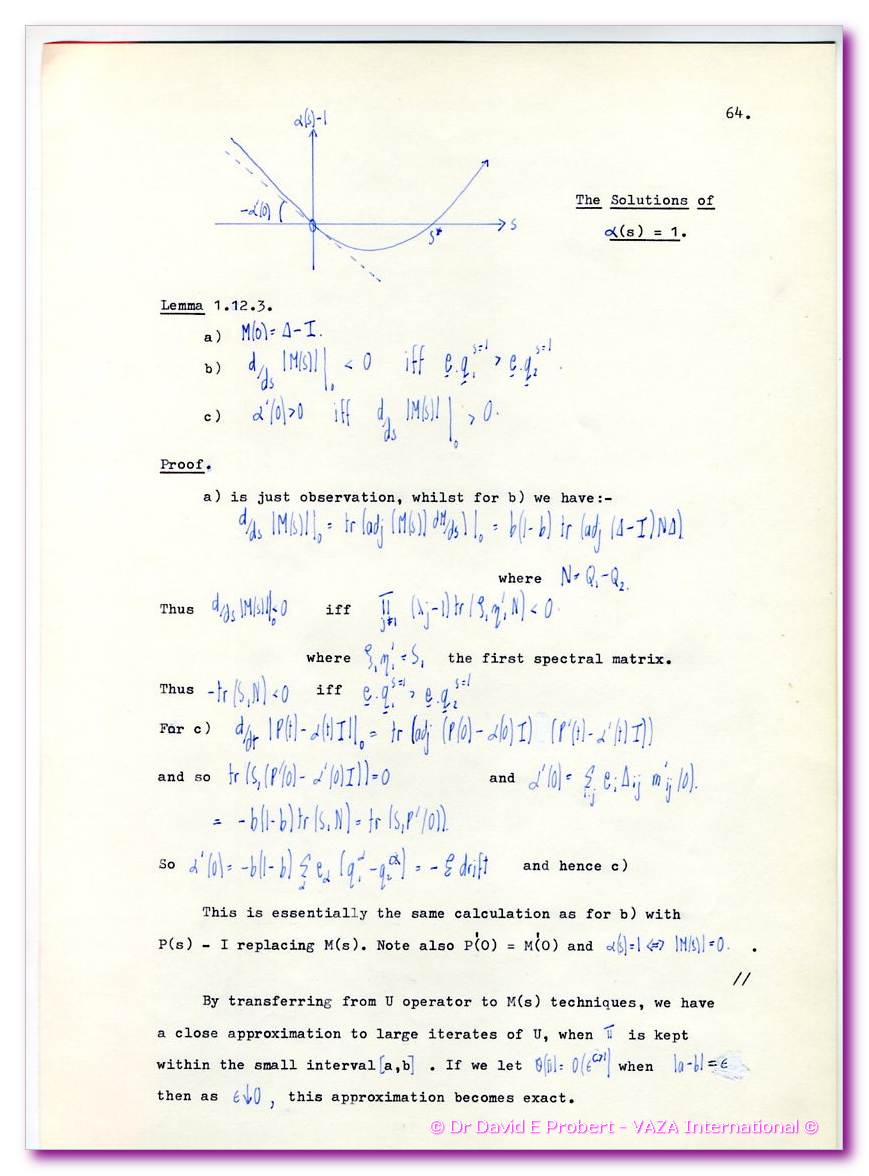 64.
α(s)-1
-α'(0)
s
s*
The Solutions of
α(s) = 1.
Lemma 1.12.3.
a) M(0) = Δ - I.
b) d/ds |M(s)| |₀ < 0 iff e.q₁ˢ⁼¹ > e.q₂ˢ⁼¹.
c) α'(0) > 0 iff d/ds |M(s)| |₀ > 0.
Proof.
a) is just observation, whilst for b) we have:-
d/ds |M(s)| |₀ = tr (adj (M(s)) dM/ds) |₀ = b(1-b) tr (adj (Δ-I) NΔ)
where N = Q₁-Q₂.
Thus d/ds |M(s)| |₀ < 0 iff π j≠1 (λj-1) tr (ξ₁η₁' N) < 0.
where ξ₁η₁' = S₁ the first spectral matrix.
Thus -tr (S₁N) < 0 iff e.q₁ˢ⁼¹ > e.q₂ˢ⁼¹
For c) d/dt |P(t) - α(t)I| |₀ = tr (adj (P(0) - α(0)I) (P'(t) - α'(t)I))
and so tr (S₁(P'(0) - α'(0)I)) = 0 and α'(0) = Σ i,j eᵢ Δᵢⱼ m'ᵢⱼ(0).
= -b(1-b) tr (S₁N) = tr (S₁P'(0)).
So α'(0) = -b(1-b) Σ eα (q₁α - q₂α) = - ℰ drift and hence c)
This is essentially the same calculation as for b) with
P(s) - I replacing M(s). Note also P'(0) = M'(0) and α(s)=1 ⇔ |M(s)| = 0. .
//
By transferring from U operator to M(s) techniques, we have
a close approximation to large iterates of U, when π is kept
within the small interval [a,b] . If we let when |a-b| = ε
then as ε↓0, this approximation becomes exact.
© Dr David E Probert - VAZA International ©